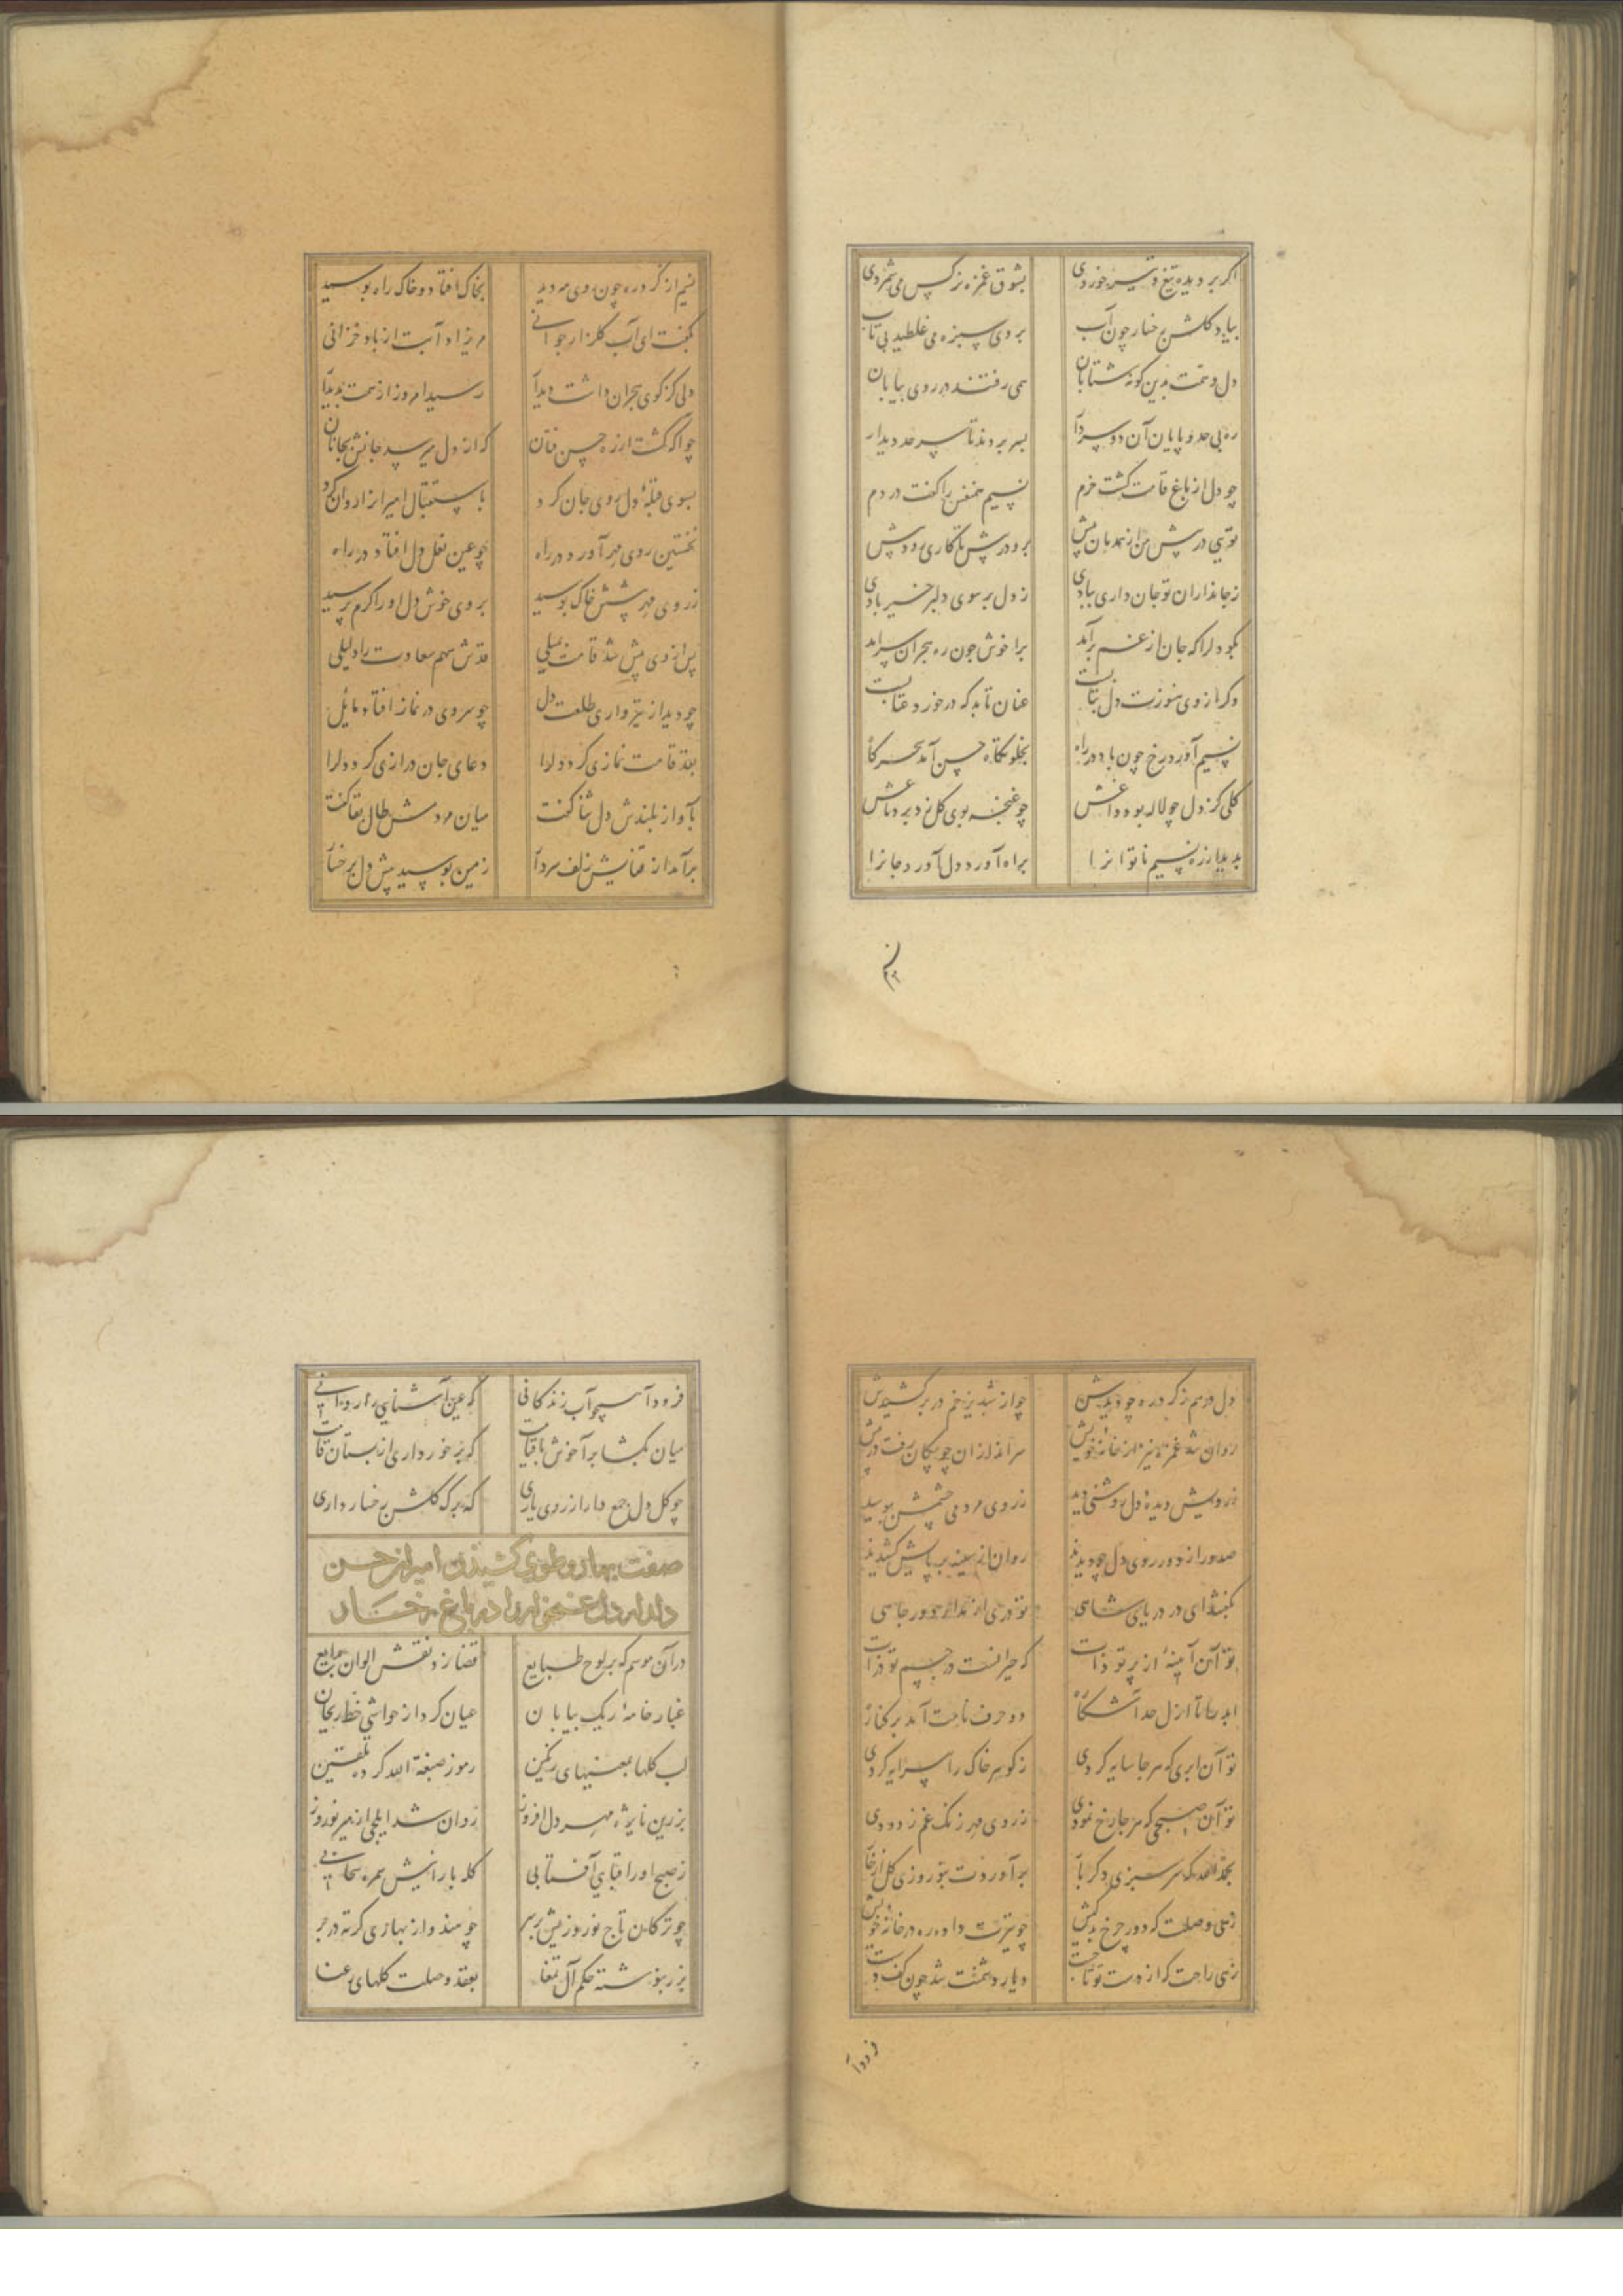 اگر بر دیده تیغ و تیر خوردی بشوق غمزه نرگس می شمردی
بیاد گلشن رخسار چون آب بروی سبزه می غلطید بی تاب
دل و همت بدین گونه شتابان همی رفتند در روی بیابان
ره بی حد و پایان آن دو سردار بسر بردند تا سرحد دیدار
چو دل از باغ قامت گشت خرم نسیم همنفس را گفت در دم
تویی در پیش من از همدمان پیش برو در پیش تا کاری رود پیش
ز جانداران تو جان داری بیادی ز دل بر سوی دلبر خیر بادی
بگو دلرا که جان از غم برآمد برا خوش چون ره هجران سرآمد
وگر از وی هنوزت دل بتابست عنان تابد که در خورد عتابست
نسیم آورد رخ چون باد در راه بخلوتگاه حسن آمد سحرگاه
گلی کز دل چو لاله بود داغش چو غنچه بوی گل زد بر دماغش
پدیدار از ره نسیم ناتوانرا براه آورد دل آورد جانرا
نسیم از گرد ره چون روی مه دید بخاک افتاد و خاک راه بوسید
بگفت ای آب گلزار جوانی مریزاد آبت از باد خزانی
دلی کز کوی هجران داشت دیدار رسید امروز از همت پدیدار
چو آگه گشت ازره حسن فتان که از دل میرسد جانش بجانان
بسوی قبلهٔ دل روی جان کرد باستقبال امیرانرا روان کرد
نخستین روی مهر آورد در راه چو عین نعل دل افتاد در راه
ز روی مهر پیشش خاک بوسید بروی خوش دل او را کرم پرسید
پس از وی پیش شد قامت بمیلی قدش سهم سعادت را دلیلی
چو دید از نیزواری طلعت دل چو سروی در نماز افتاد مایل
بقد قامت نمازی کرد دلرا دعای جان درازی کرد دلرا
بآواز بلندش دل ثنا گفت میان مردمش طال بقا گفت
برآمد از قفایش زلف سردار زمین بوسید پیش دل برخسار
دل درهم ز گرد ره چو دیدش چو از شبدیز خم در بر کشیدش
روان شد غمزه نیز از خانهٔ خویش سرانداز آن چو پیکان رفت در پیش
ز رویش دیدهٔ دل روشنی دید ز روی مردمی چشمش ببوسید
صدور از دور روی دل چو دیدند روان از سینه بر پایش کشیدند
بگفتند ای در دریای شاهی
تو آن آیینهٔ از پرتو ذات که حیرانست در جسم تو ذرات
ابد را تا ازل حد آشکارا دو حرف نامت آمد بر کنارا
تو آن ابری که هر جا سایه کردی ز گوهر خاک را سرمایه کردی
تو آن صبحی که هر جا رخ نمودی ز روی مهر زنگ غم زدودی
بحمدالله که سرسبزی دگر بار برآوردت بنوروزی گل از خار
زهی وصلت که دور چرخ بد کیش چو تیرت داد ره در خانهٔ خویش
زهی راحت که از دست تو تاخت دیار دشمنت شد چون کف دست
فرود آ همچو آب زندگانی که عین آشنایی را روانی
میان بگشا برآ خوش با قیامت که برخورداری از بستان قامت
چو گل دل جمع دار از روی یاری که برگ گلشن رخسار داری
صفت بهار و طوی کشیدن امیران حسن
دلدار دل غمخوار را در باغ رخسار
در آن موسم که بر لوح طبایع قضا زد نقش الوان بدایع
غبار خامهٔ ریگ بیابان عیان کرد از حواشی خط ریحان
لب گلها بمعنیهای رنگین رموز صبغة الله کرد تلقین
بزرین نایژه مهر دل افروز روان شد ایلچی از میر نوروز
ز صبح او را قبای آفتابی کله بارانیش سمره سحابی
چو ترکان تاج نوروزیش بر سر چو هندو از بهاری کرته در بر
بزر بنوشته حکم آل تمغا بعقد وصلت گلهای رعنا
فرود آ